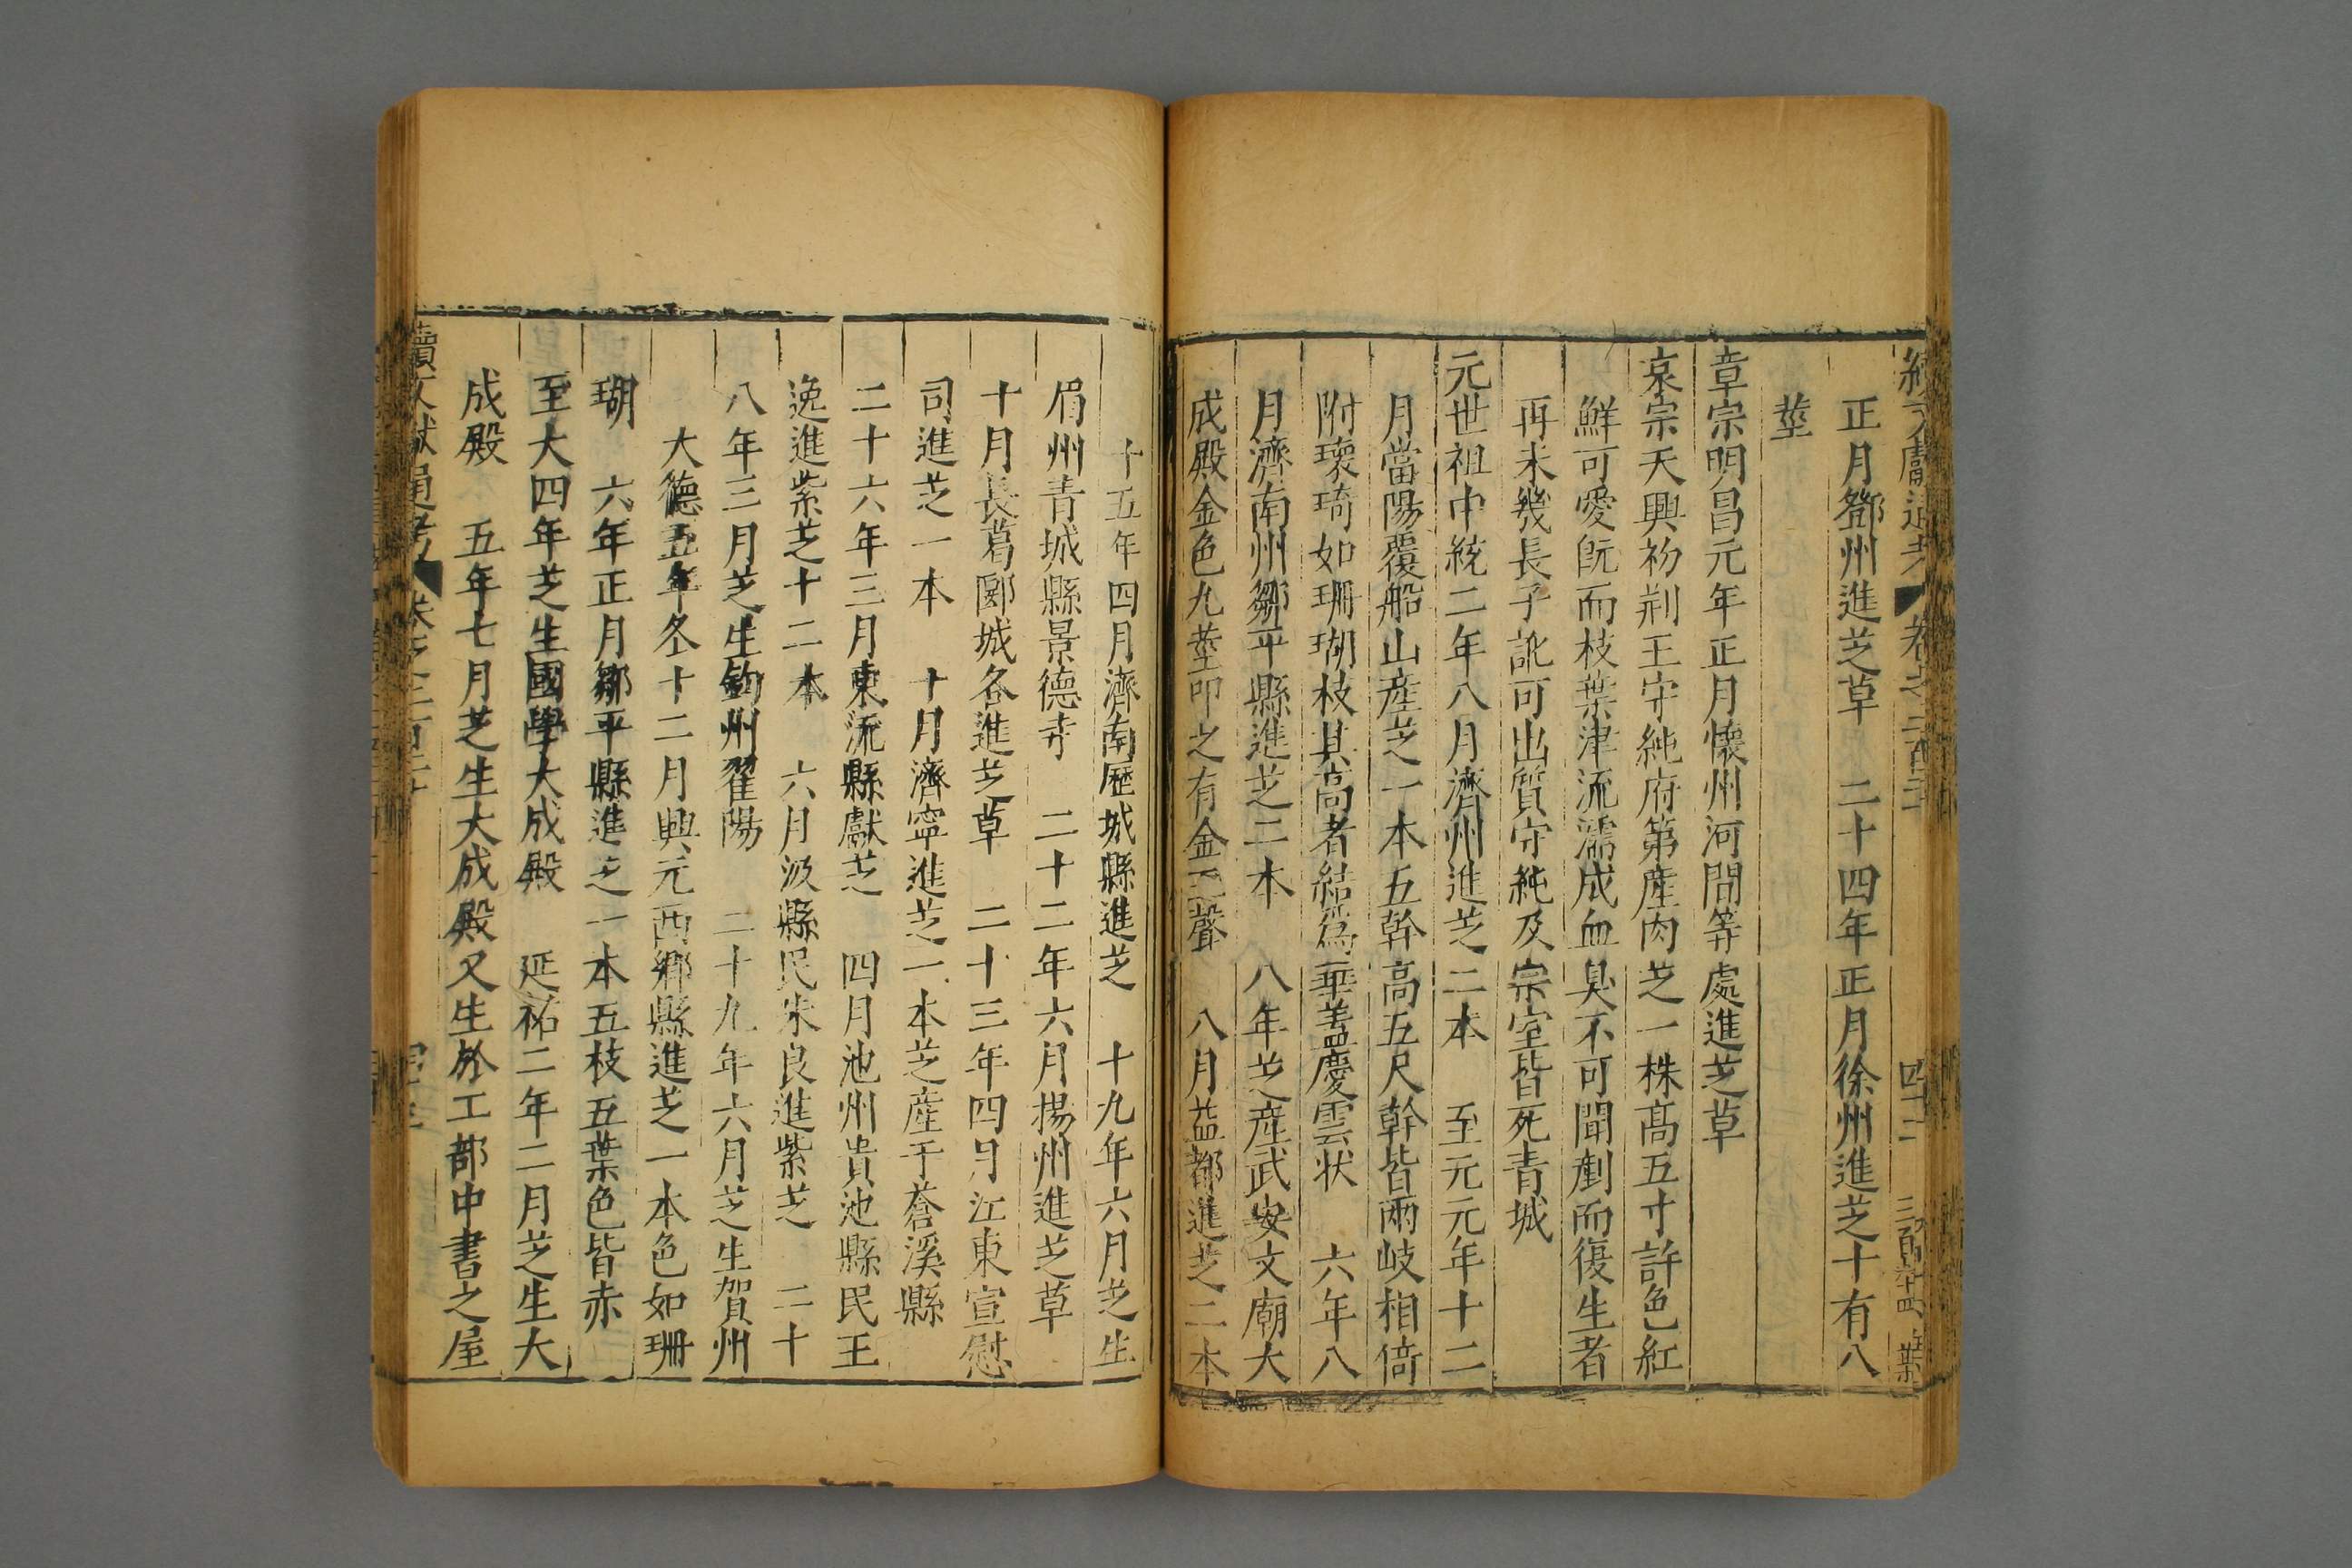 正月鄧州進芝草　二十四年正月徐州進芝十有八
莖
章宗明昌元年正月懷州河間等處進芝草
哀宗天興初荆王守純府第產肉芝一株高五寸許色紅
鮮可愛旣而枝葉津流濡成血臭不可聞剷而復生者
再未幾長子訛可出質守純及宗室皆死青城
元世祖中統二年八月濟州進芝二本　至元元年十二
月當陽覆船山産芝一本五幹高五尺幹皆兩岐相倚
附瓌琦如珊瑚枝其高者結爲華蓋慶雲状　六年八
月濟南州鄒平縣進芝二本　八年芝産武安文廟大
成殿金色九莖叩之有金玉聲　八月益都進芝二本
十五年四月濟南歷城縣進芝　十九年六月芝生
眉州青城縣景德寺　二十二年六月揚州進芝草
十月長葛郾城各進芝草　二十三年四月江東宣慰
司進芝一本　十月濟寧進芝一本芝産于蒼溪縣
二十六年三月東流縣獻芝　四月池州貴池縣民王
逸進紫芝十二本　六月汲縣民朱良進紫芝　二十
八年三月芝生鈞州翟陽　二十九年六月芝生賀州
大德五年冬十二月興元西鄉縣進芝一本色如珊
瑚　六年正月鄒平縣進芝一本五枝五葉色皆赤
至大四年芝生國學大成殿　延祐二年二月芝生大
成殿　五年七月芝生大成殿又生於工部中書之屋